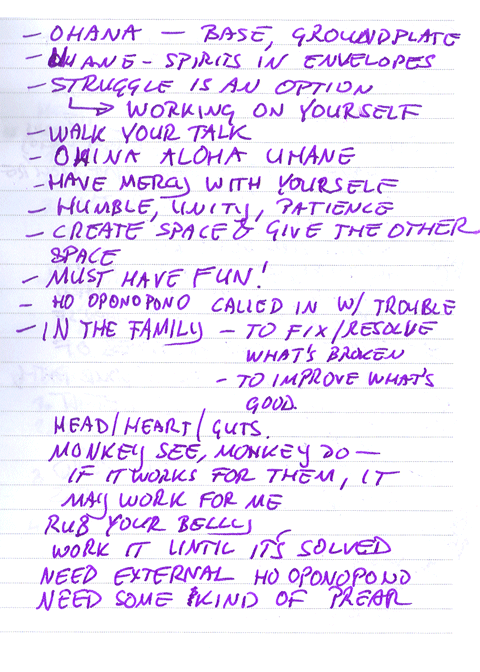 - OHANA - BASE, GROUNDPLATE
- UHANE - SPIRITS IN ENVELOPES
- STRUGGLE IS AN OPTION
↳ WORKING ON YOURSELF
- WALK YOUR TALK
- OHINA ALOHA UHANE
- HAVE MERCY WITH YOURSELF
- HUMBLE, UNITY, PATIENCE
- CREATE SPACE & GIVE THE OTHER
SPACE
- MUST HAVE FUN!
- HO OPONOPONO CALLED IN W/ TROUBLE
- IN THE FAMILY - TO FIX/RESOLVE
WHAT'S BROKEN
- TO IMPROVE WHAT'S
GOOD.
HEAD/HEART/GUTS.
MONKEY SEE, MONKEY DO -
IF IT WORKS FOR THEM, IT
MAY WORK FOR ME
RUB YOUR BELLY
WORK IT UNTIL IT'S SOLVED
NEED EXTERNAL HO OPONOPONO
NEED SOME KIND OF PREAR